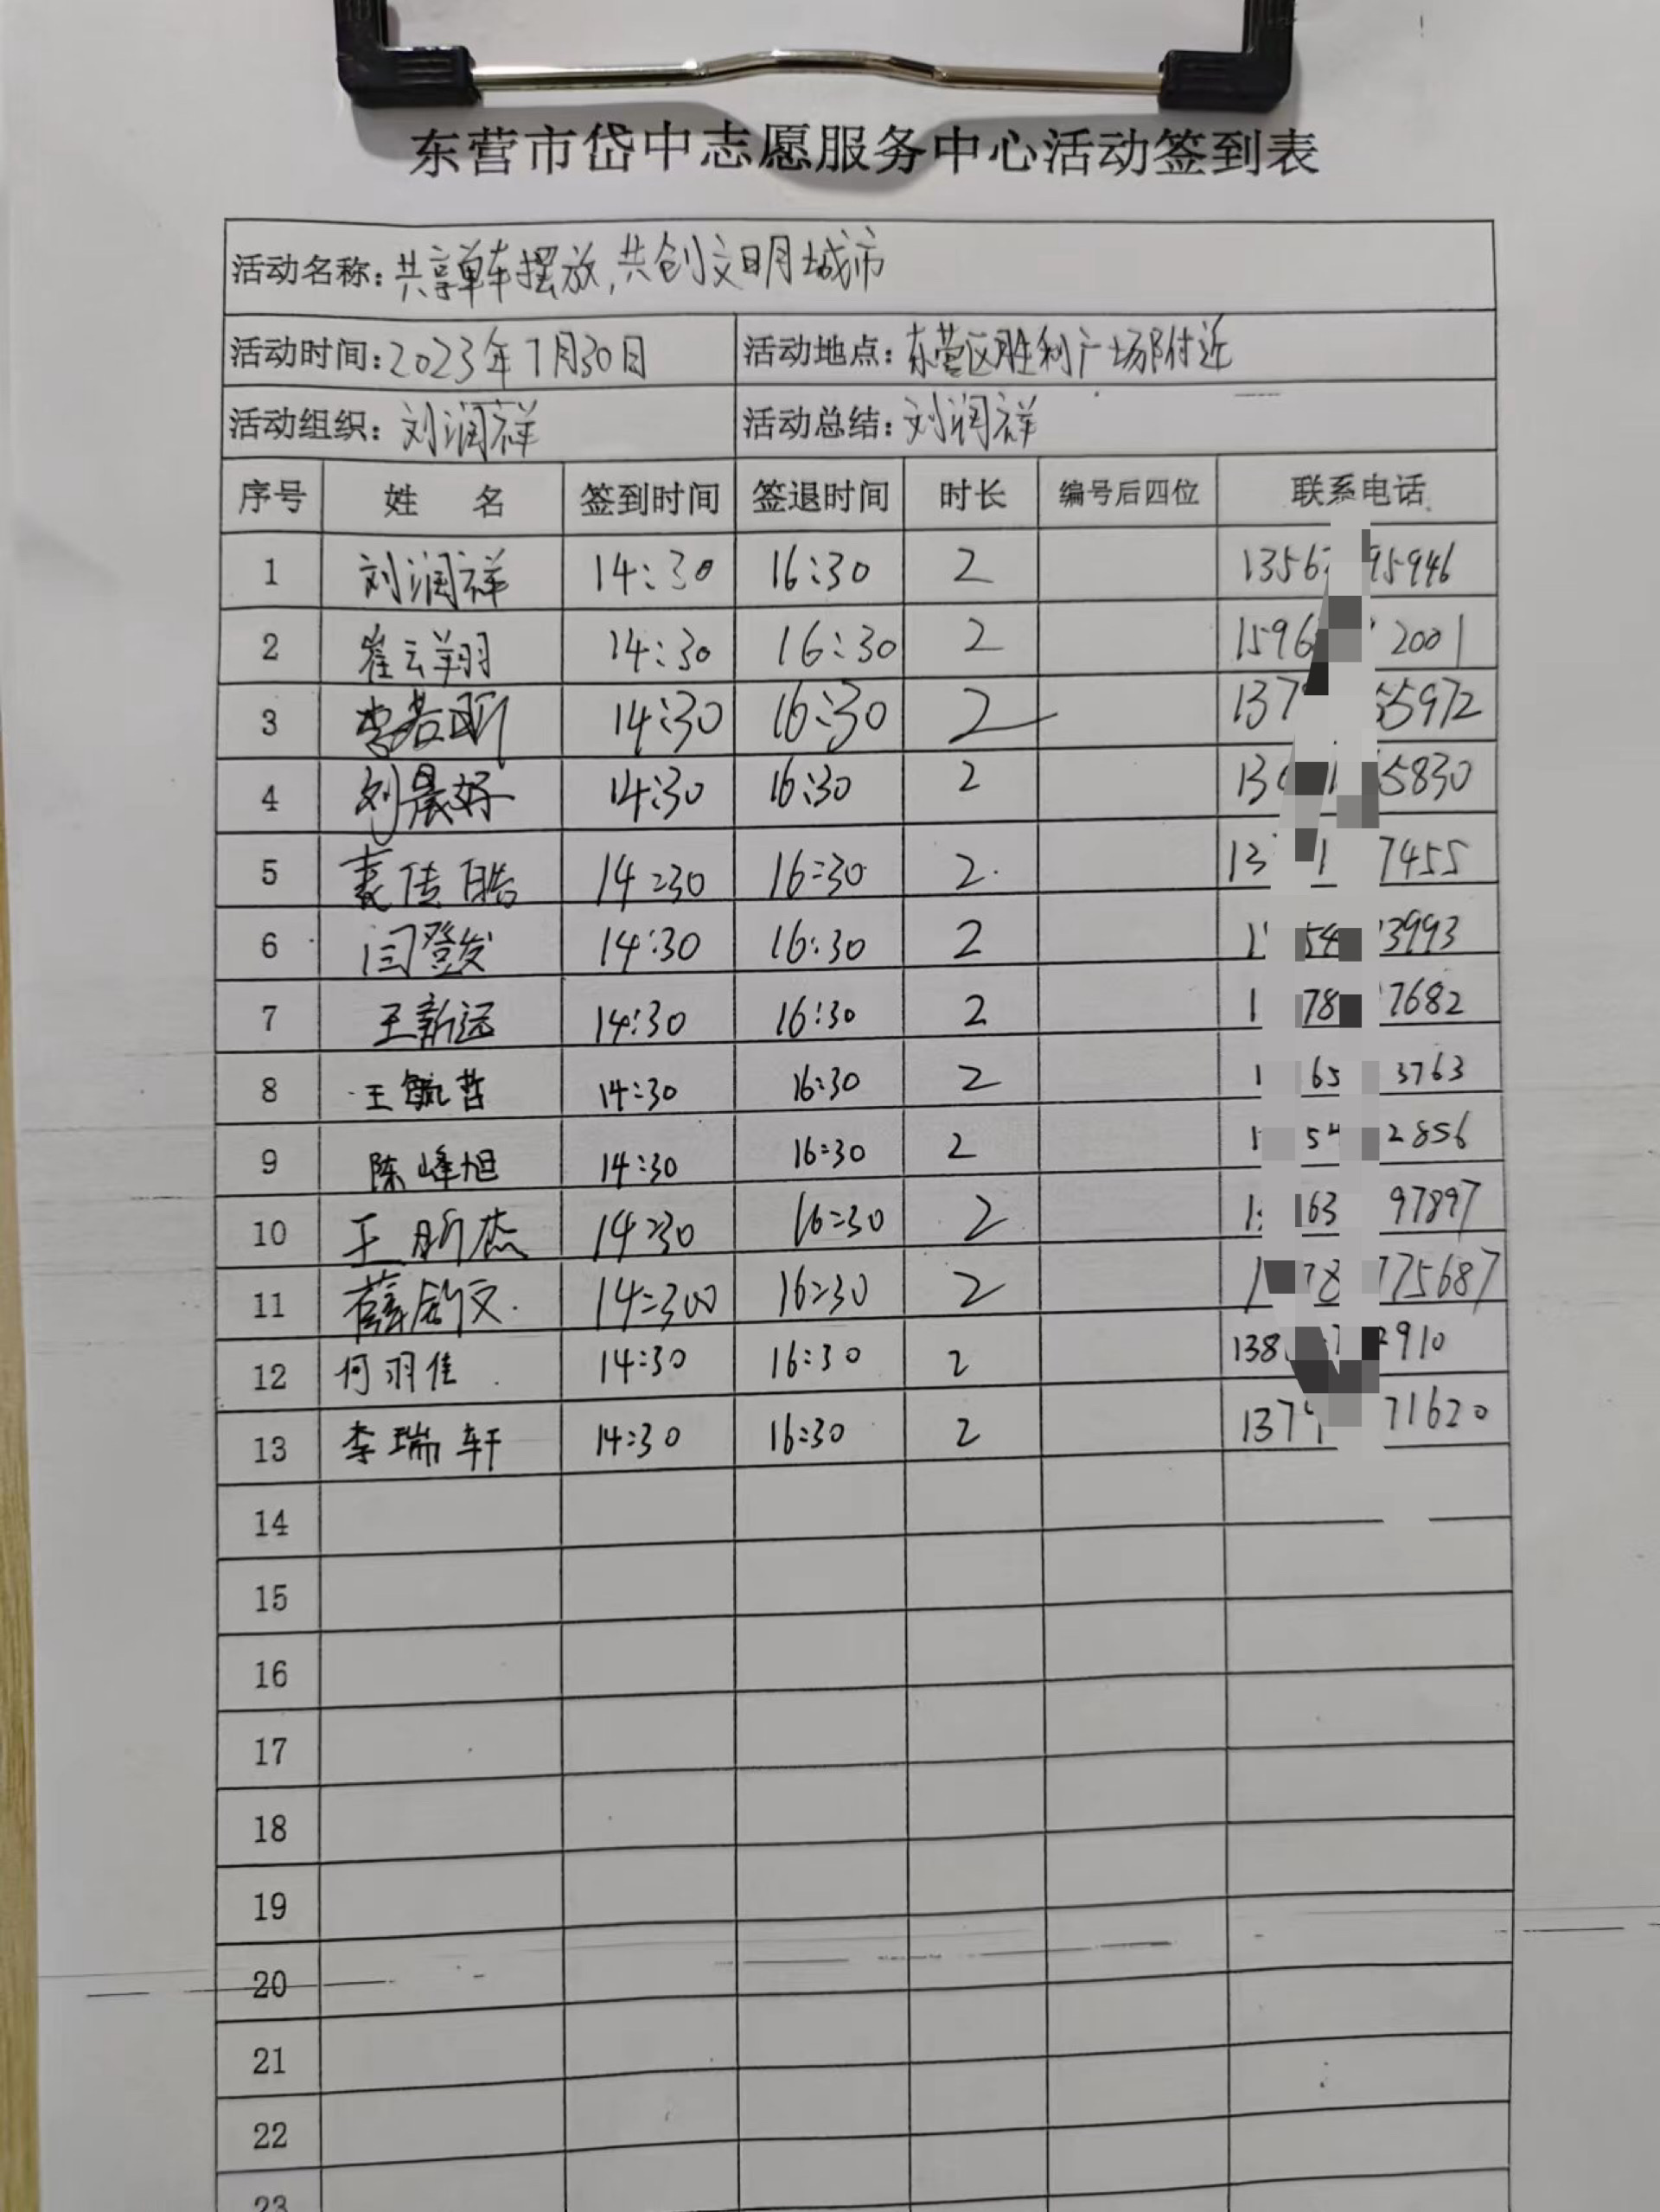 东营市岱中志愿服务中心活动签到表
活动名称：共享单车摆放，共创文明城市
活动时间：2023年7月30日 活动地点：东营区胜利广场附近
活动组织：刘润祥 活动总结：刘润祥
序号 姓 名 签到时间 签退时间 时长 编号后四位 联系电话
1 刘润祥 14:30 16:30 2 1356 95946
2 崔云翔 14:30 16:30 2 1596 2001
3 14:30 16:30 2 137 55972
4 刘晨好 14:30 16:30 2 13 5830
5 袁传皓 14:30 16:30 2 13 1 7455
6 闫登发 14:30 16:30 2 1 54 3993
7 王新远 14:30 16:30 2 1 78 7682
8 王毓哲 14:30 16:30 2 1 65 3763
9 陈峰旭 14:30 16:30 2 1 54 2856
10 王昕杰 14:30 16:30 2 1 163 97897
11 薛 文 14:300 16:30 2 1 78 775687
12 何羽佳 14:30 16:30 2 138 7 2910
13 李瑞轩 14:30 16:30 2 1379 71620
14
15
16
17
18
19
20
21
22
23